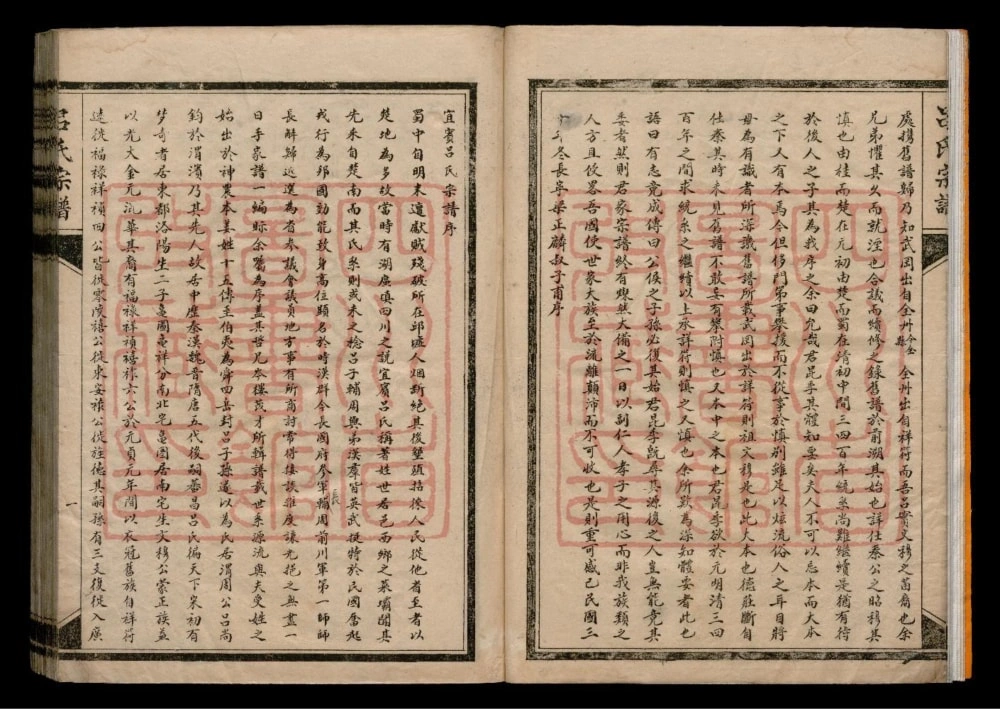 呂氏宗譜
處携舊譜歸乃知武岡出自全州今全縣 全州出自祥符而吾呂實文穆之苗裔也余
兄弟懼其久而就湮也合議而續修之錄舊譜於前溯其始也詳仕泰公之昭穆其
慎也由桂而楚在元初由楚而蜀在清初中間三四百年統系尚雖繼續是猶有待
於後人之子其為我序之余曰允哉君昆季其體知要矣夫人不可以忘本而大本
之下人有本焉今但侈門第事攀援而不從事於慎別雖足以炫流俗人之耳目將
毋為有識者所嗤議舊譜所載武岡出於詳符則祖文穆是也此大本也德莊斷自
仕泰其時未見舊譜不敢妄有攀附慎也又本中之本也君昆季欲於元明清三四
百年之間求統系之繼續以上承詳符則慎之又慎也余所默為深知體要者此也
語曰有志竟成傳曰公侯之子孫必復其始君昆季既尋其源後之人豈無能竟其
委者然則君家宗譜終有燦然大備之一日以副仁人孝子之用心而非我族類之
人方且吾國使世家大族至於流離顛沛而不可收也是則重可感已民國三
年冬長寧梁正麟叔子甫序
宜賓呂氏宗譜序
蜀中自明末遭獻賊殘破所在邱墟人烟斷絕其後墾殖招徠人民從他省至者以
楚地為多故當時有湖廣填四川之說宜賓呂氏稱著姓世居邑西鄉之菜壩聞其
先來自楚南而其氏系則或未之稔呂子輔周與弟漢羣皆英武挺特於民國奮起
戎行為邦國勤能致身高位顯名於時漢群令長國府參軍輔周前川軍第一師師
長
長解歸迭選為省參議會議員地方事有所商討常得接談雅度謙光挹之無盡一
日手家譜一編眎余囑為序蓋其哲兄本樸茂才所輯譜載世系源流與夫受姓之
始出於神農本姜姓十五傳至伯夷為舜四岳封呂子孫遂以為氏居渭周公呂尚
釣於渭濱乃其先人故居中歷秦漢魏晉隋唐五代後嗣蕃昌呂氏徧天下宋初有
夢奇者居東都洛陽生二子龜圖龜祥分南北宅龜圖居南宅生文穆公蒙正族益
以光大金元流華其裔有福祿祥禎禧祚六公於元貞元年間以衣冠舊族自祥符
遠徙福祿祥禎四公皆從零陵禧公徙東安祿公徙旌德其嗣孫有三支復從入廣
一
呂氏宗譜